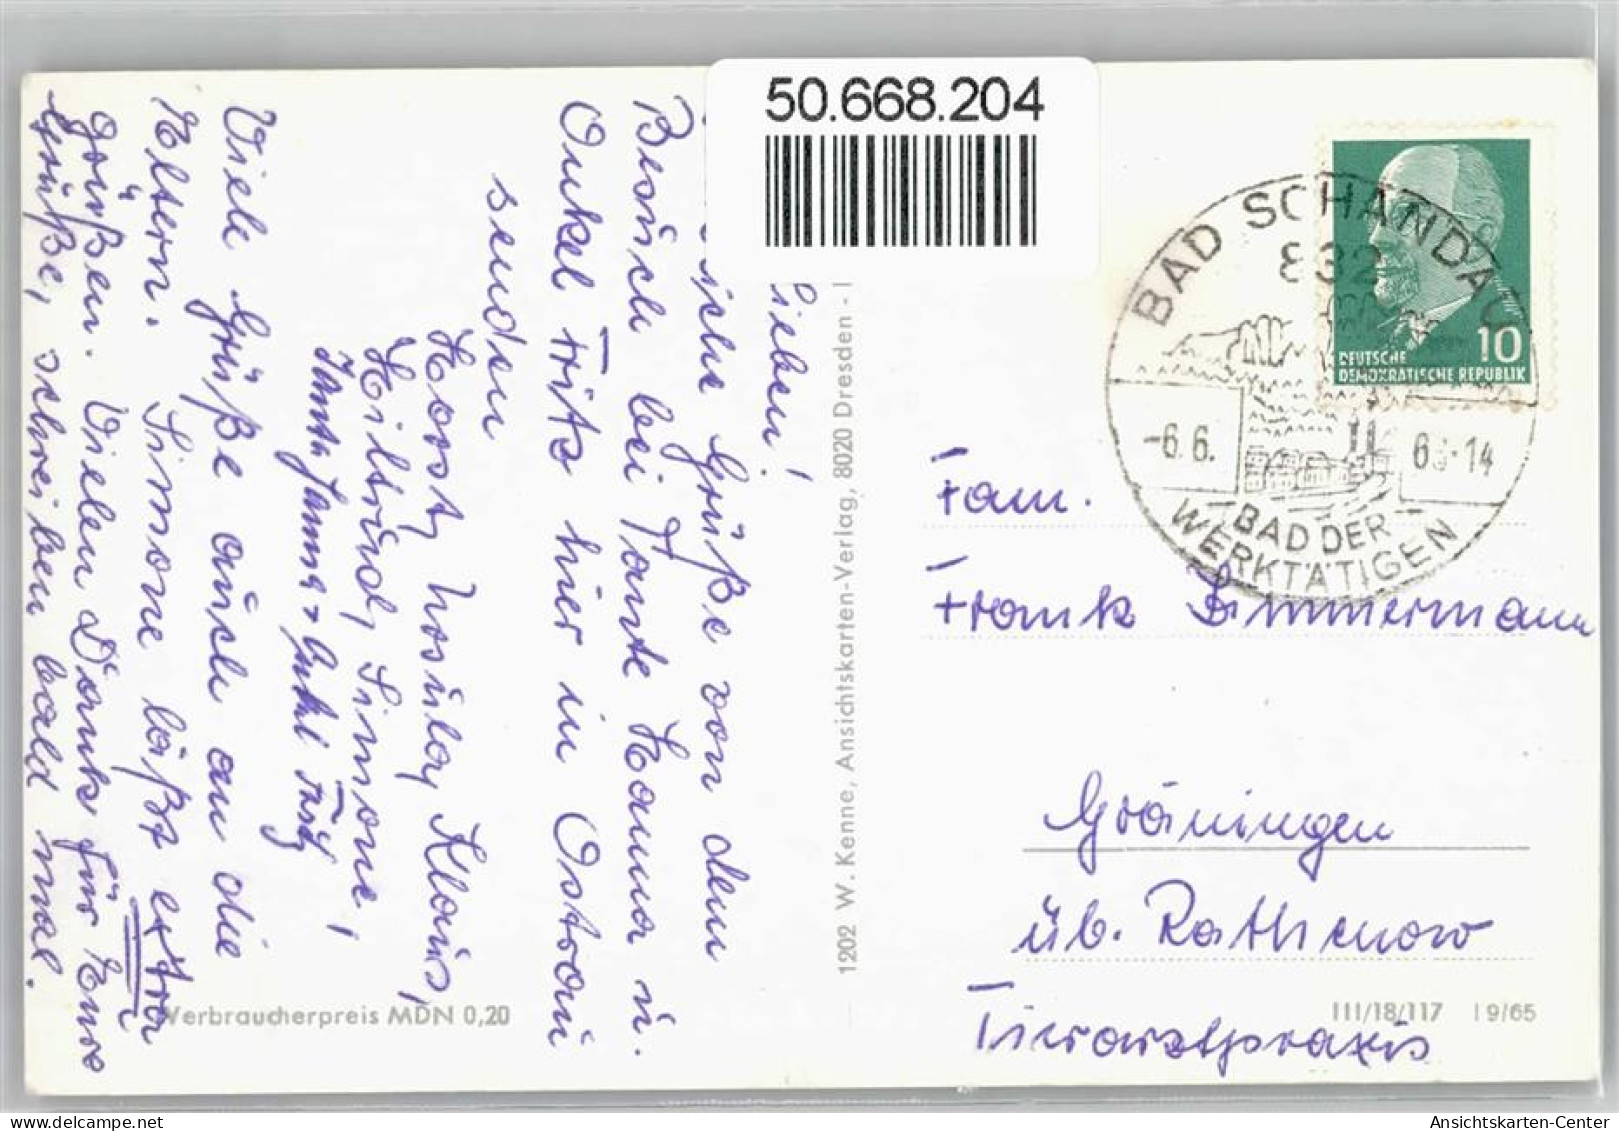 50.668.204
Lieben!
Grüße von dem
Besuch bei Tante Hanna u.
Onkel Fritz hier in Ostrau
senden
Horst, Klaus,
Hiltrud, Simone,
Viele Grüße auch an die
Eltern. Simone läßt extra
grüßen. Vielen Dank für Eure
Grüße, schreiben bald mal.
Verbraucherpreis MDN 0,20
1202 W. Kenne, Ansichtskarten-Verlag, 8020 Dresden - I
BAD SCHANDAU
832
-6.6. 14
BAD DER
WERKTÄTIGEN
10
DEUTSCHE
DEMOKRATISCHE REPUBLIK
Fam.
Frank Zimmermann
Gräningen
üb. Rathenow
Tierarztpraxis
III/18/117 I 9/65
Ansichtskarten-Center